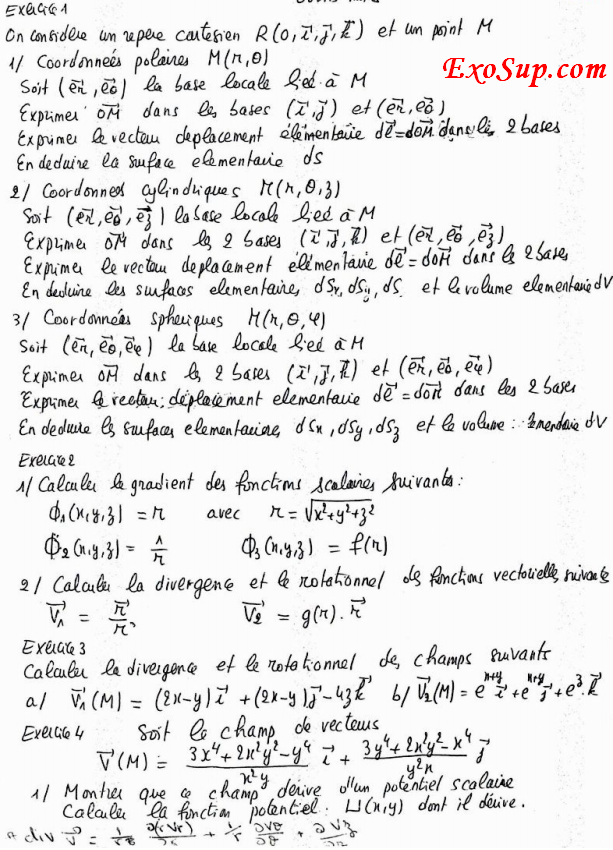 Exercice 1
On considère un repère cartesien R(O, i, j, k) et un point M
1/ Coordonneés polaires M(r, θ)
ExoSup.com
Soit (er, eθ) la base locale lieé à M
Exprimer OM dans les bases (i, j) et (er, eθ)
Exprimer le vecteur deplacement élémentaire dl = dOM dans les 2 bases
En deduire la surface elementaire dS
2/ Coordonneés cylindriques M(r, θ, z)
Soit (er, eθ, ez) la base locale lieé à M
Exprimer OM dans les 2 bases (i, j, k) et (er, eθ, ez)
Exprimer le vecteur deplacement élémentaire dl = dOM dans le 2 bases
En deduire les surfaces elementaires dSx, dSy, dS et le volume elementaire dV
3/ Coordonneés spheriques M(r, θ, φ)
Soit (er, eθ, eφ) la base locale lieé à M
Exprimer OM dans les 2 bases (i, j, k) et (er, eθ, eφ)
Exprimer le vecteur déplacement elementaire dl = dOM dans les 2 bases
En deduire les surfaces elementaires dSx, dSy, dSz et le volume dV
Exercice 2
1/ Calculer le gradient des fonctions scalaires suivants :
Φ1(x,y,z) = r avec r = √x²+y²+z²
Φ2(x,y,z) = 1/r Φ3(x,y,z) = f(r)
2/ Calculer la divergence et le rotationnel des fonctions vectorielles suivante
V1 = r/r, V2 = g(r). r
Exercice 3
Calculer la divergence et le rotationnel des champs suivants
a/ V1(M) = (2x-y) i + (2x-y) j - 4z k b/ V2(M) = e^x+y i + e^x+y j + e^3. k
Exercice 4 Soit le champ de vecteurs
V(M) = 3x⁴+2x²y²-y⁴/x²y i + 3y⁴+2x²y²-x⁴/y²x j
1/ Montrer que ce champ dérive d'un potentiel scalaire
Calculer la fonction potentiel : U(x,y) dont il dérive.
div V =